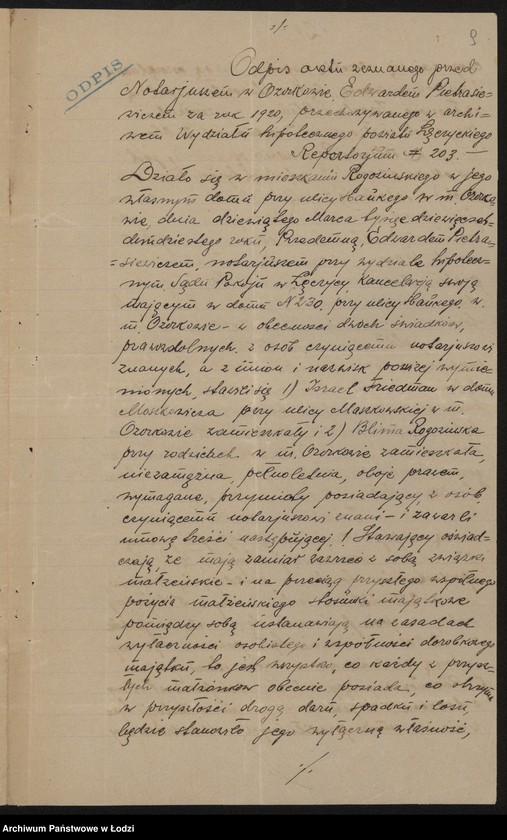 ·/·
9
ODPIS
Odpis aktu zeznanego przed
Notarjuszem w Ozorkowie, Edwardem Pietrasie-
wiczem za rok 1920, przechowywanego w archi-
wum Wydziału hipotecznego powiatu Łęczyckiego
Repertorjum # 203. —
Działo się w mieszkaniu Rogozińskiego w jego
własnym domu przy ulicy w m. Ozorko-
wie, dnia dziesiątego Marca tysiąc dziewięćset-
dwudziestego roku, Przedemną, Edwardem Pietra-
siewiczem, notarjuszem przy wydziale hipotecz-
nym, Sądu Pokoju w Łęczycy, Kancelarję swoją
mającym w domu N 230, przy ulicy w
m. Ozorkowie - w obecności dwóch świadków,
prawozdolnych, z osób czyniącemu notarjuszowi
znanych, a z imion i nazwisk poniżej wymie-
nionych, stawili się 1) Izrael Friedman w domu
Moszkowicza przy ulicy Maszkowskiej w m.
Ozorkowie zamieszkały i 2) Blima Rogozińska
przy rodzicach w m. Ozorkowie zamieszkała,
niezamężna, pełnoletnia, oboje prawem,
wymagane, przymioty posiadający, z osób
czyniącemu notarjuszowi znani - i zawarli
umowę treści następującej. Stawający oświad-
czają, że mają zamiar zawrzeć z sobą związki
małżeńskie - i na przeciąg przyszłego wspólnego
pożycia małżeńskiego stosunki majątkowe
pomiędzy sobą ustanawiają na zasadach
wyłączności osobistego i wspólności dorobkowego
majątku, to jest wszystko, co każdy z przysz-
łych małżonków obecnie posiada, co otrzyma
w przyszłości drogą daru, spadku i losu,
będzie stanowiło jego wyłączną własność,
·/·
Archiwum Państwowe w Łodzi